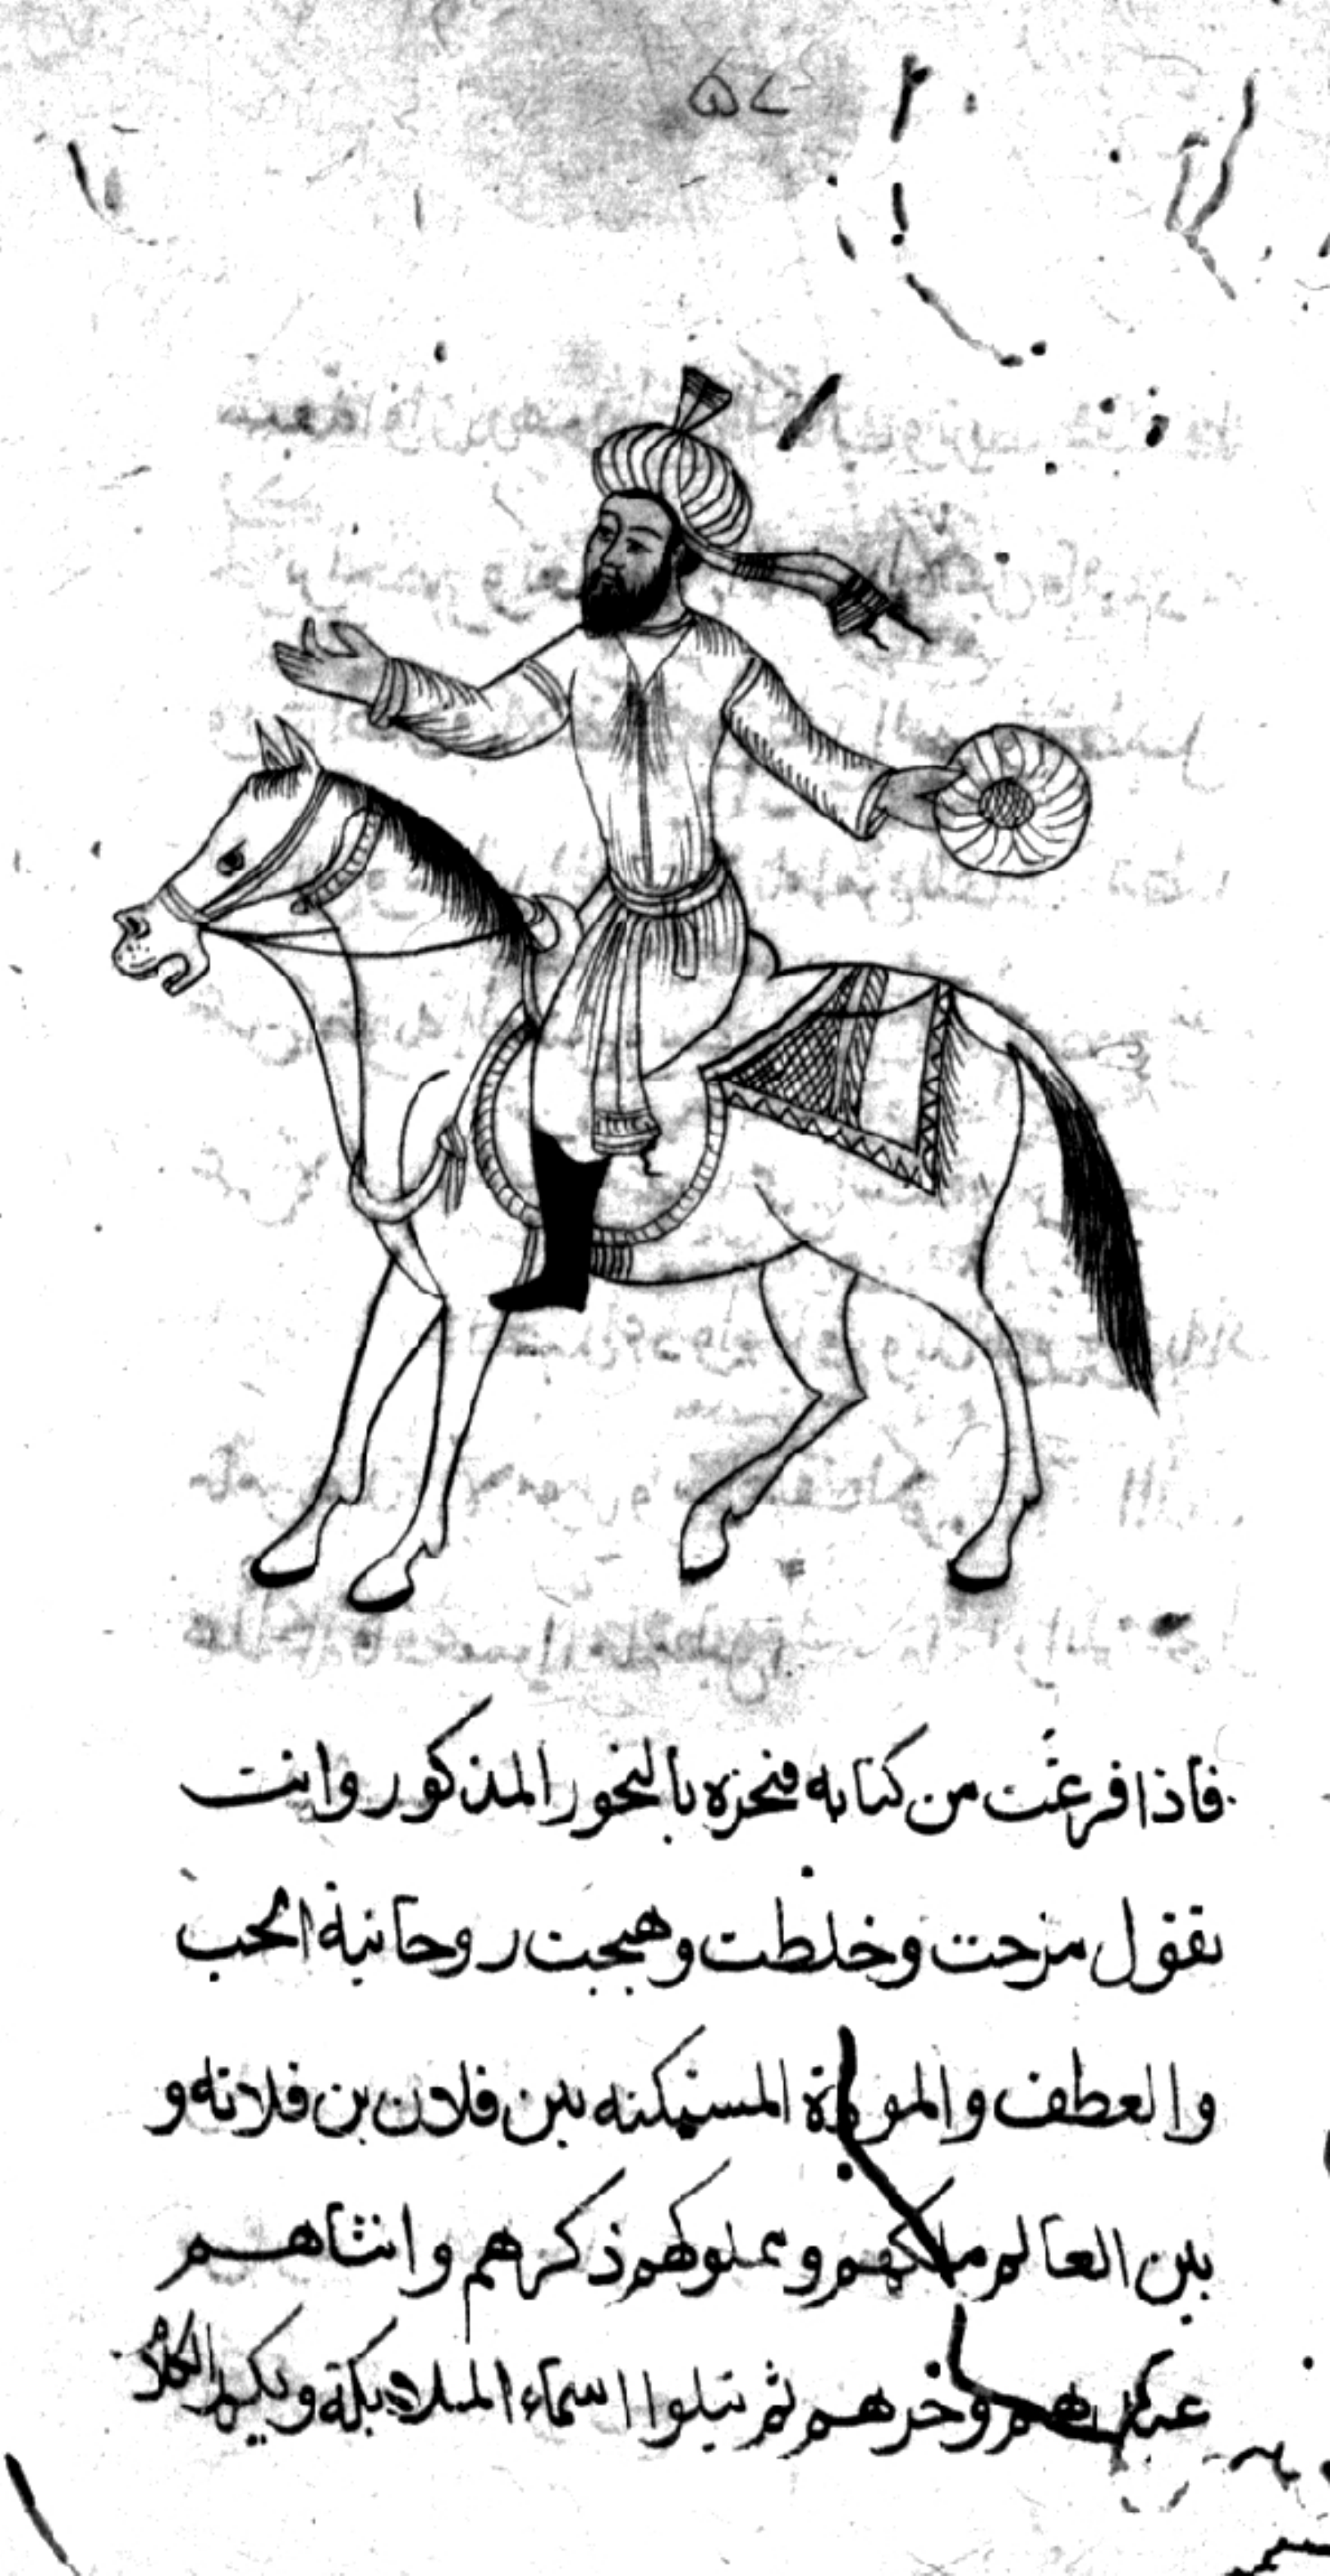 ۵۷
فاذا فرغت من كتابه فبخره بالبخور المذكور وانت
تقول مزجت وخلطت وهيجت روحانية الحب
والعطف والمودة المستمكنه بين فلان بن فلانه و
بين العالم ملكهم ومملوكهم ذكرهم وانثاهم
عبدهم وحرهم ثم تتلوا اسماء الملايكة ويكرر الكلام